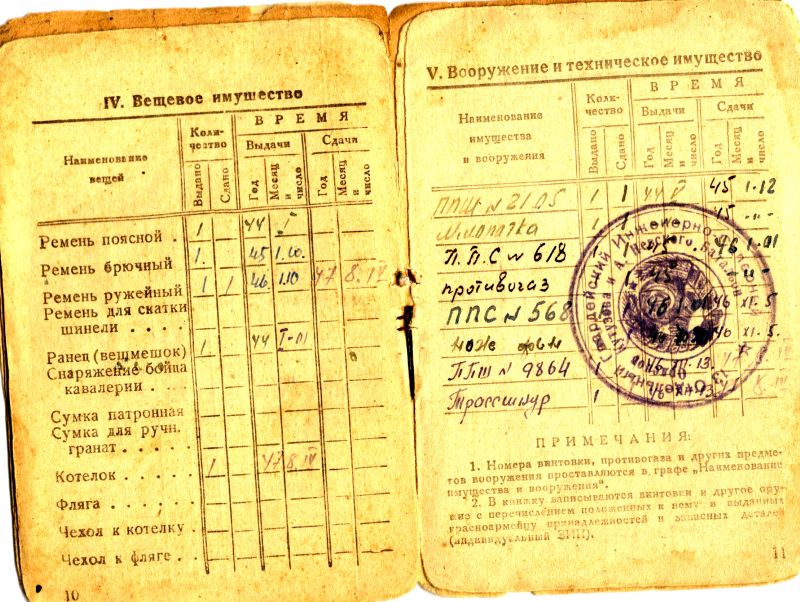 IV. Вещевое имущество
Наименование
вещей
Коли-
чество
ВРЕМЯ
Выдачи
Сдачи
Выдано
Сдано
Год
Месяц
и
число
Год
Месяц
и
число
Ремень поясной . 1 44
Ремень брючный 1. 45 1.10.
Ремень ружейный 1 1 46 1.10 47 8.IV
Ремень для скатки
шинели . . . .
Ранец (вещмешок) 1 44 I-01
Снаряжение бойца
кавалерии . . . .
Сумка патронная
Сумка для ручн.
гранат . . . . .
Котелок . . . . . 1 47 8.IV
Фляга . . . . . .
Чехол к котелку .
Чехол к фляге . .
10
V. Вооружение и техническое имущество
Наименование
имущества
и вооружения
Коли-
чество
ВРЕМЯ
Выдачи
Сдачи
Выдано
Сдано
Год
Месяц
и
число
Год
Месяц
и
число
ППШ N 2105 1 1 44 45 1-12
лопатка 1 1 45 -"-
П.П.С N 618 46 1-01
противогаз 45 -"-
ППС N 568 1 46 46 XI.5
нож XI.5
ППШ N 9864
Трассшнур 1
ПРИМЕЧАНИЯ:
1. Номера винтовки, противогаза и других предме-
тов вооружения проставляются в графе „Наименование
имущества и вооружения".
2. В книжку записываются винтовки и другое ору-
жие с перечислением положенных к нему и выданных
красноармейцу принадлежностей и запасных деталей
(индивидуальный ЗИП).
11